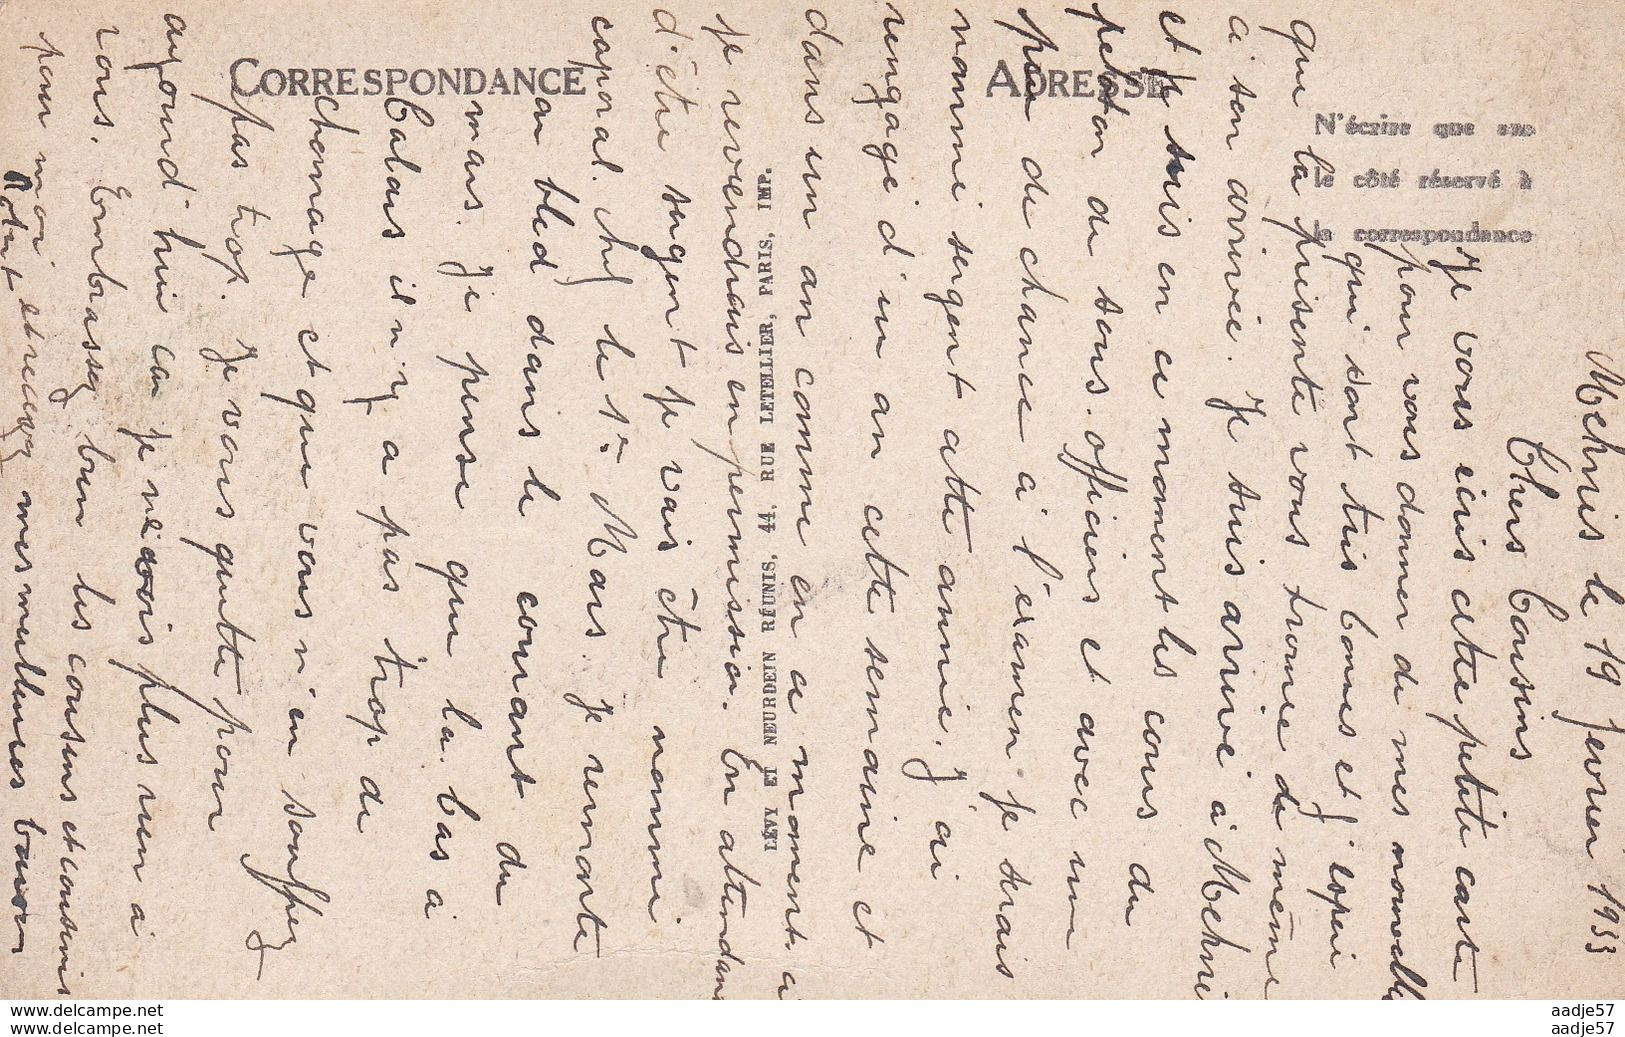 CORRESPONDANCE
ADRESSE
N'écrire que sur
le côté réservé à
la correspondance
LÉVY ET NEURDEIN RÉUNIS, 44, RUE LETELLIER, PARIS, IMP.
Meknis le 19 Fevrier 1933
Chers Cousins
Je vous ecris cette petite carte
pour vous donner de mes nouvelles
qui sont tres bonnes et j'espere
que la presente vous trouve de même
a son arrivée. Je suis arrivé à Mekni
et je suis en ce moment les cours du
peloton de sous. officiers et avec un
peu de chance a l'examen je serais
nommé sergent cette année. J'ai
rengagé d'un an cette semaine et
dans un an comme en a moment. ci
je reviendrais en permission. En attendant
d'être sergent je vais être nommé
caporal. chef le 1er Mars. Je remonte
au bled dans le courant du
mars. Je pense que la. bas a
Calais il n'y a pas trop de
chomage et que vous n'en souffrez
pas trop. Je vous quitte pour
aujourd'hui car je ne vois plus rien a
vous. Embrassez bien les cousins et cousines
pour moi et recevez mes meilleures baisers
aadje57
aadje57